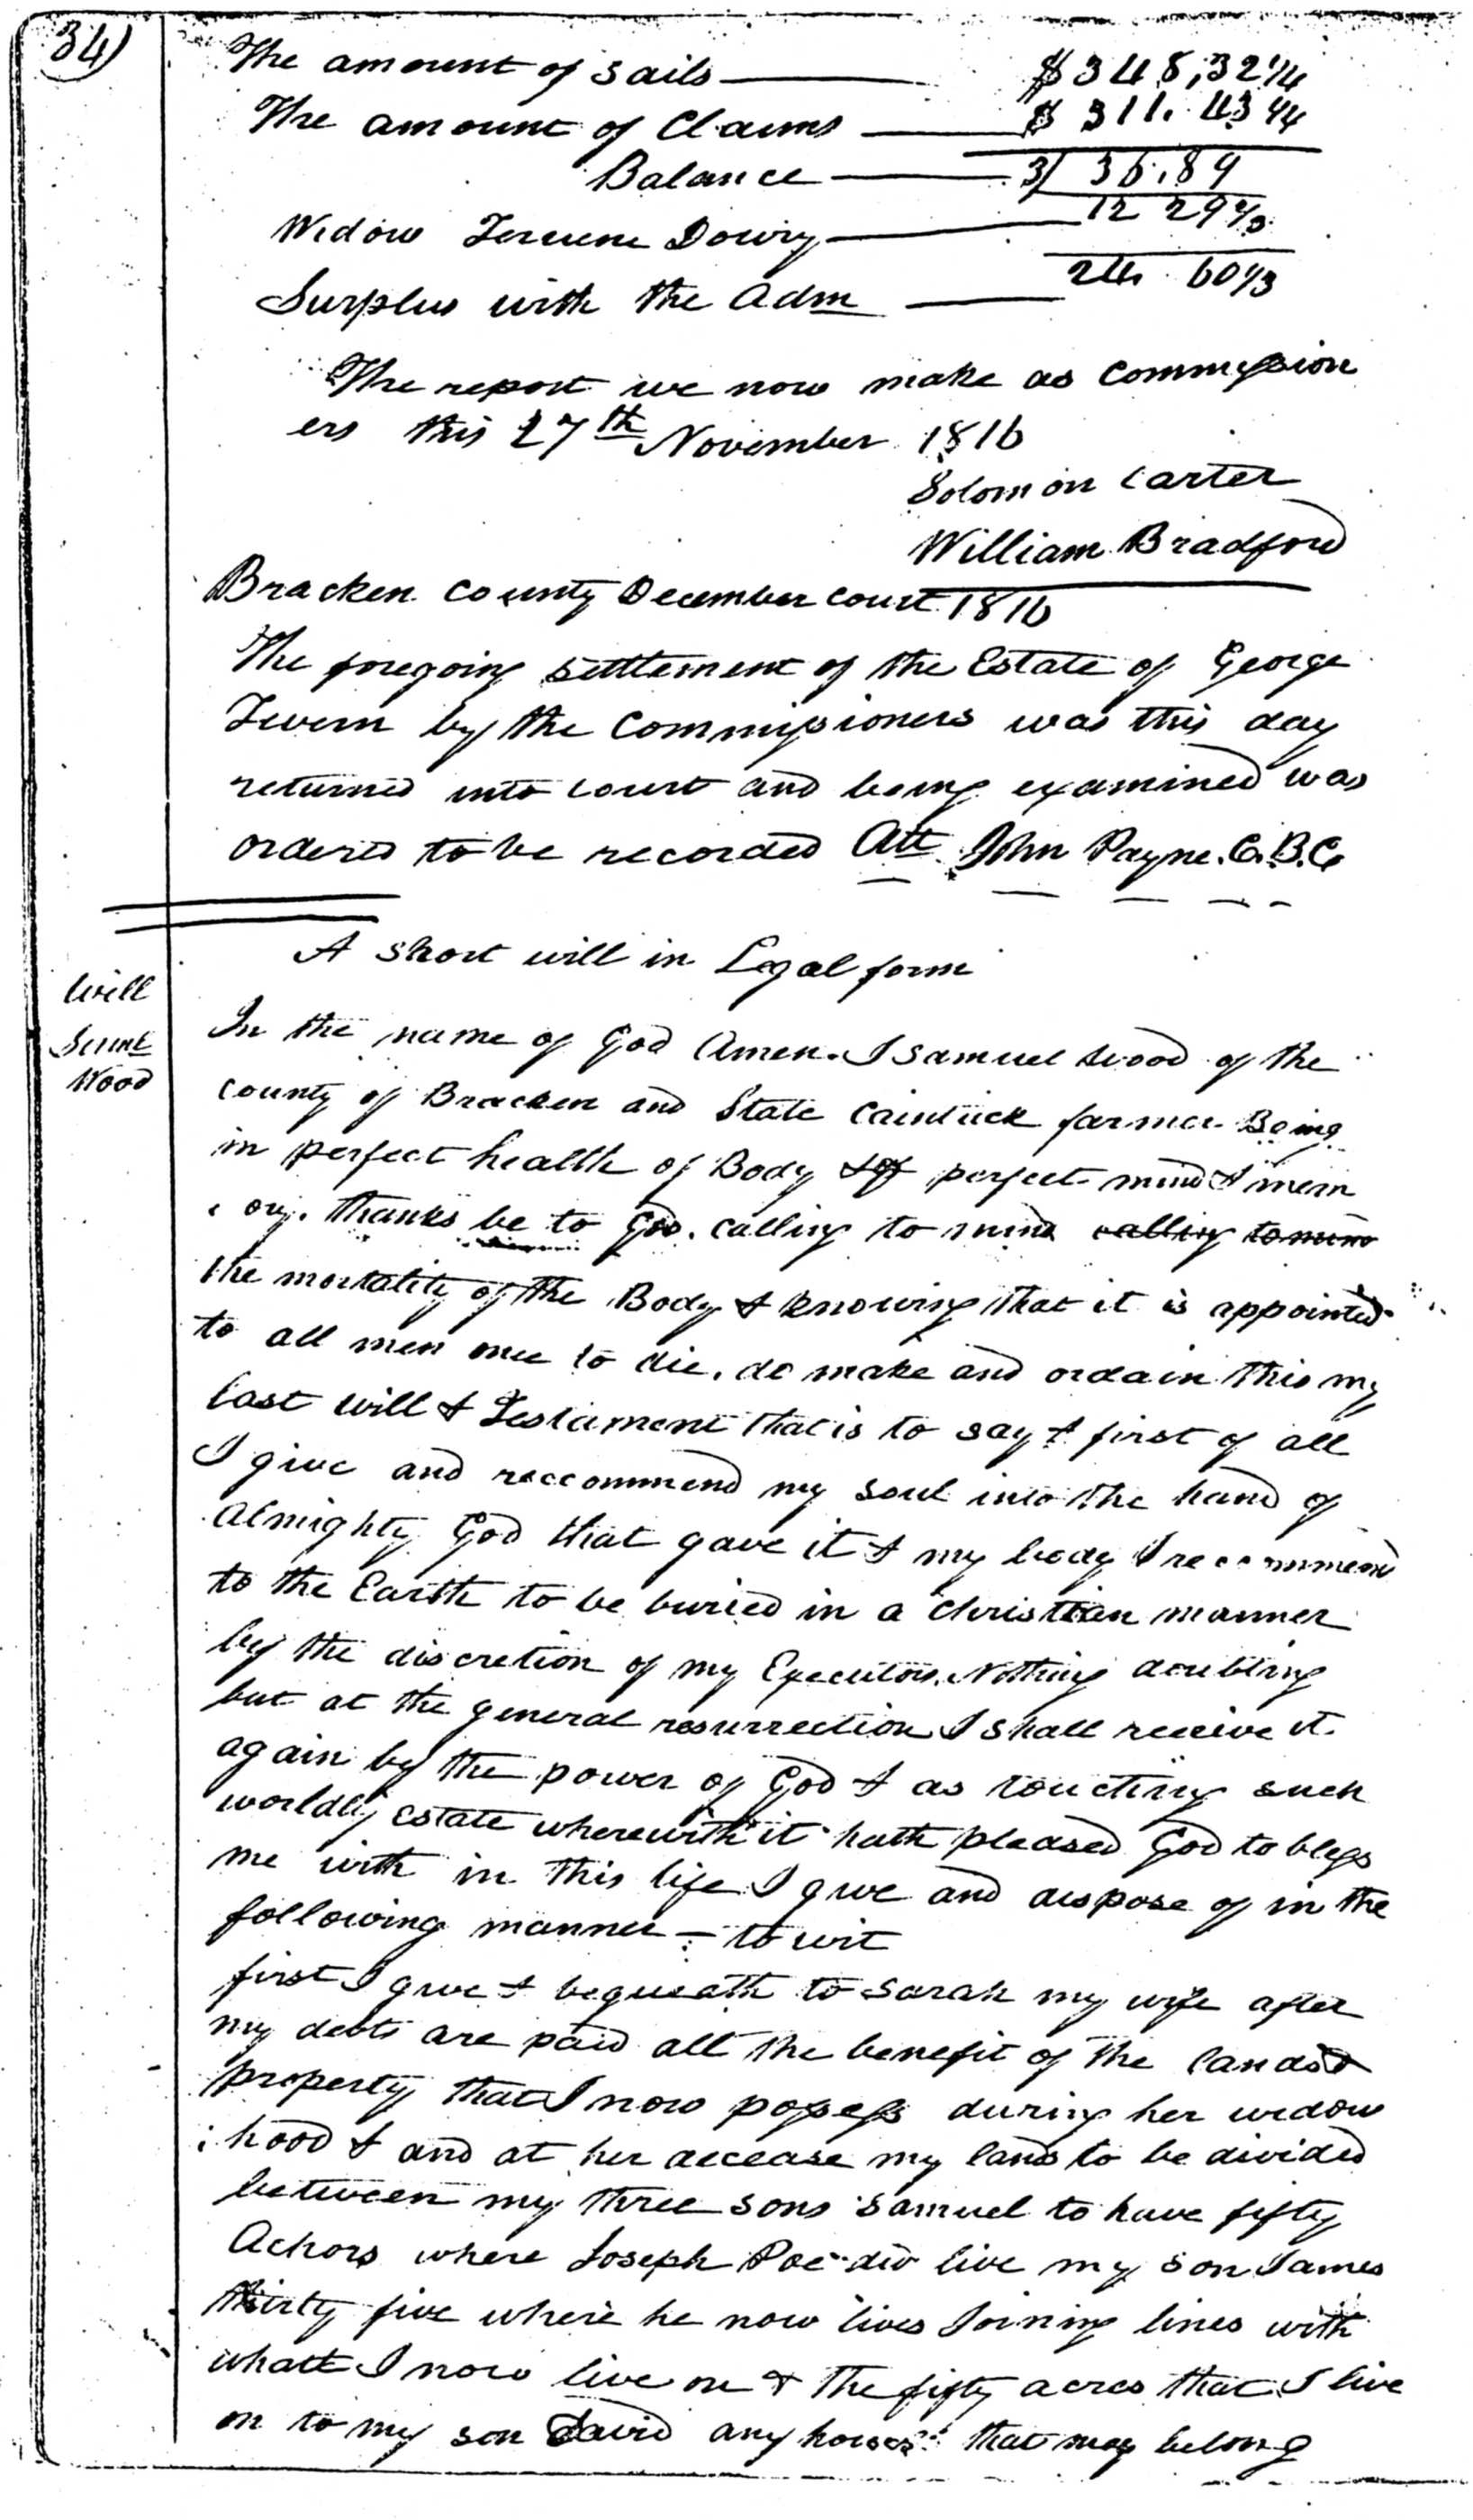 34)
The amount of Sails — $348,32 1/4
The amount of Claims — $311.43 1/4
Balance — 3/ 36.89
Widow Dowry — 12 29 2/3
Surplus with the Adm — 24. 60 1/3
The report we now make as Commission
ers this 27th November 1816
Solomon Carter
William Bradford
Bracken County December Court 1816
The foregoing settlement of the Estate of George
by the Commissioners was this day
returned into court and being examined was
ordered to be recorded Att John Payne. C.B.C
A short will in Legal form
Will
Saml
Wood
In the name of God Amen. I Samuel Wood of the
county of Bracken and State Caintuck farmer Being
in perfect health of Body & of perfect mind & mem
ory. thanks be to God. calling to mind calling to mind
the mortality of the Body & knowing that it is appointed
to all men once to die. do make and ordain this my
last will & Testament that is to say & first of all
I give and reccommend my soul into the hand of
Almighty God that gave it & my body I recommend
to the Earth to be buried in a christian manner
by the discretion of my Executors. Nothing doubting
but at the general resurrection I shall receive it
again by the power of God & as touching such
worldly estate wherewith it hath pleased God to bless
me with in this life I give and dispose of in the
following manner — to wit
first I give & bequeath to Sarah my wife after
my debts are paid all the benefit of the land &
property that I now possess during her widow
hood & and at her decease my land to be divided
between my three sons Samuel to have fifty
Achors where Joseph Poe did live my son James
thirty five where he now lives Joining lines with
whatt I now live on & the fifty acres that I live
on to my son David any horses that may belong